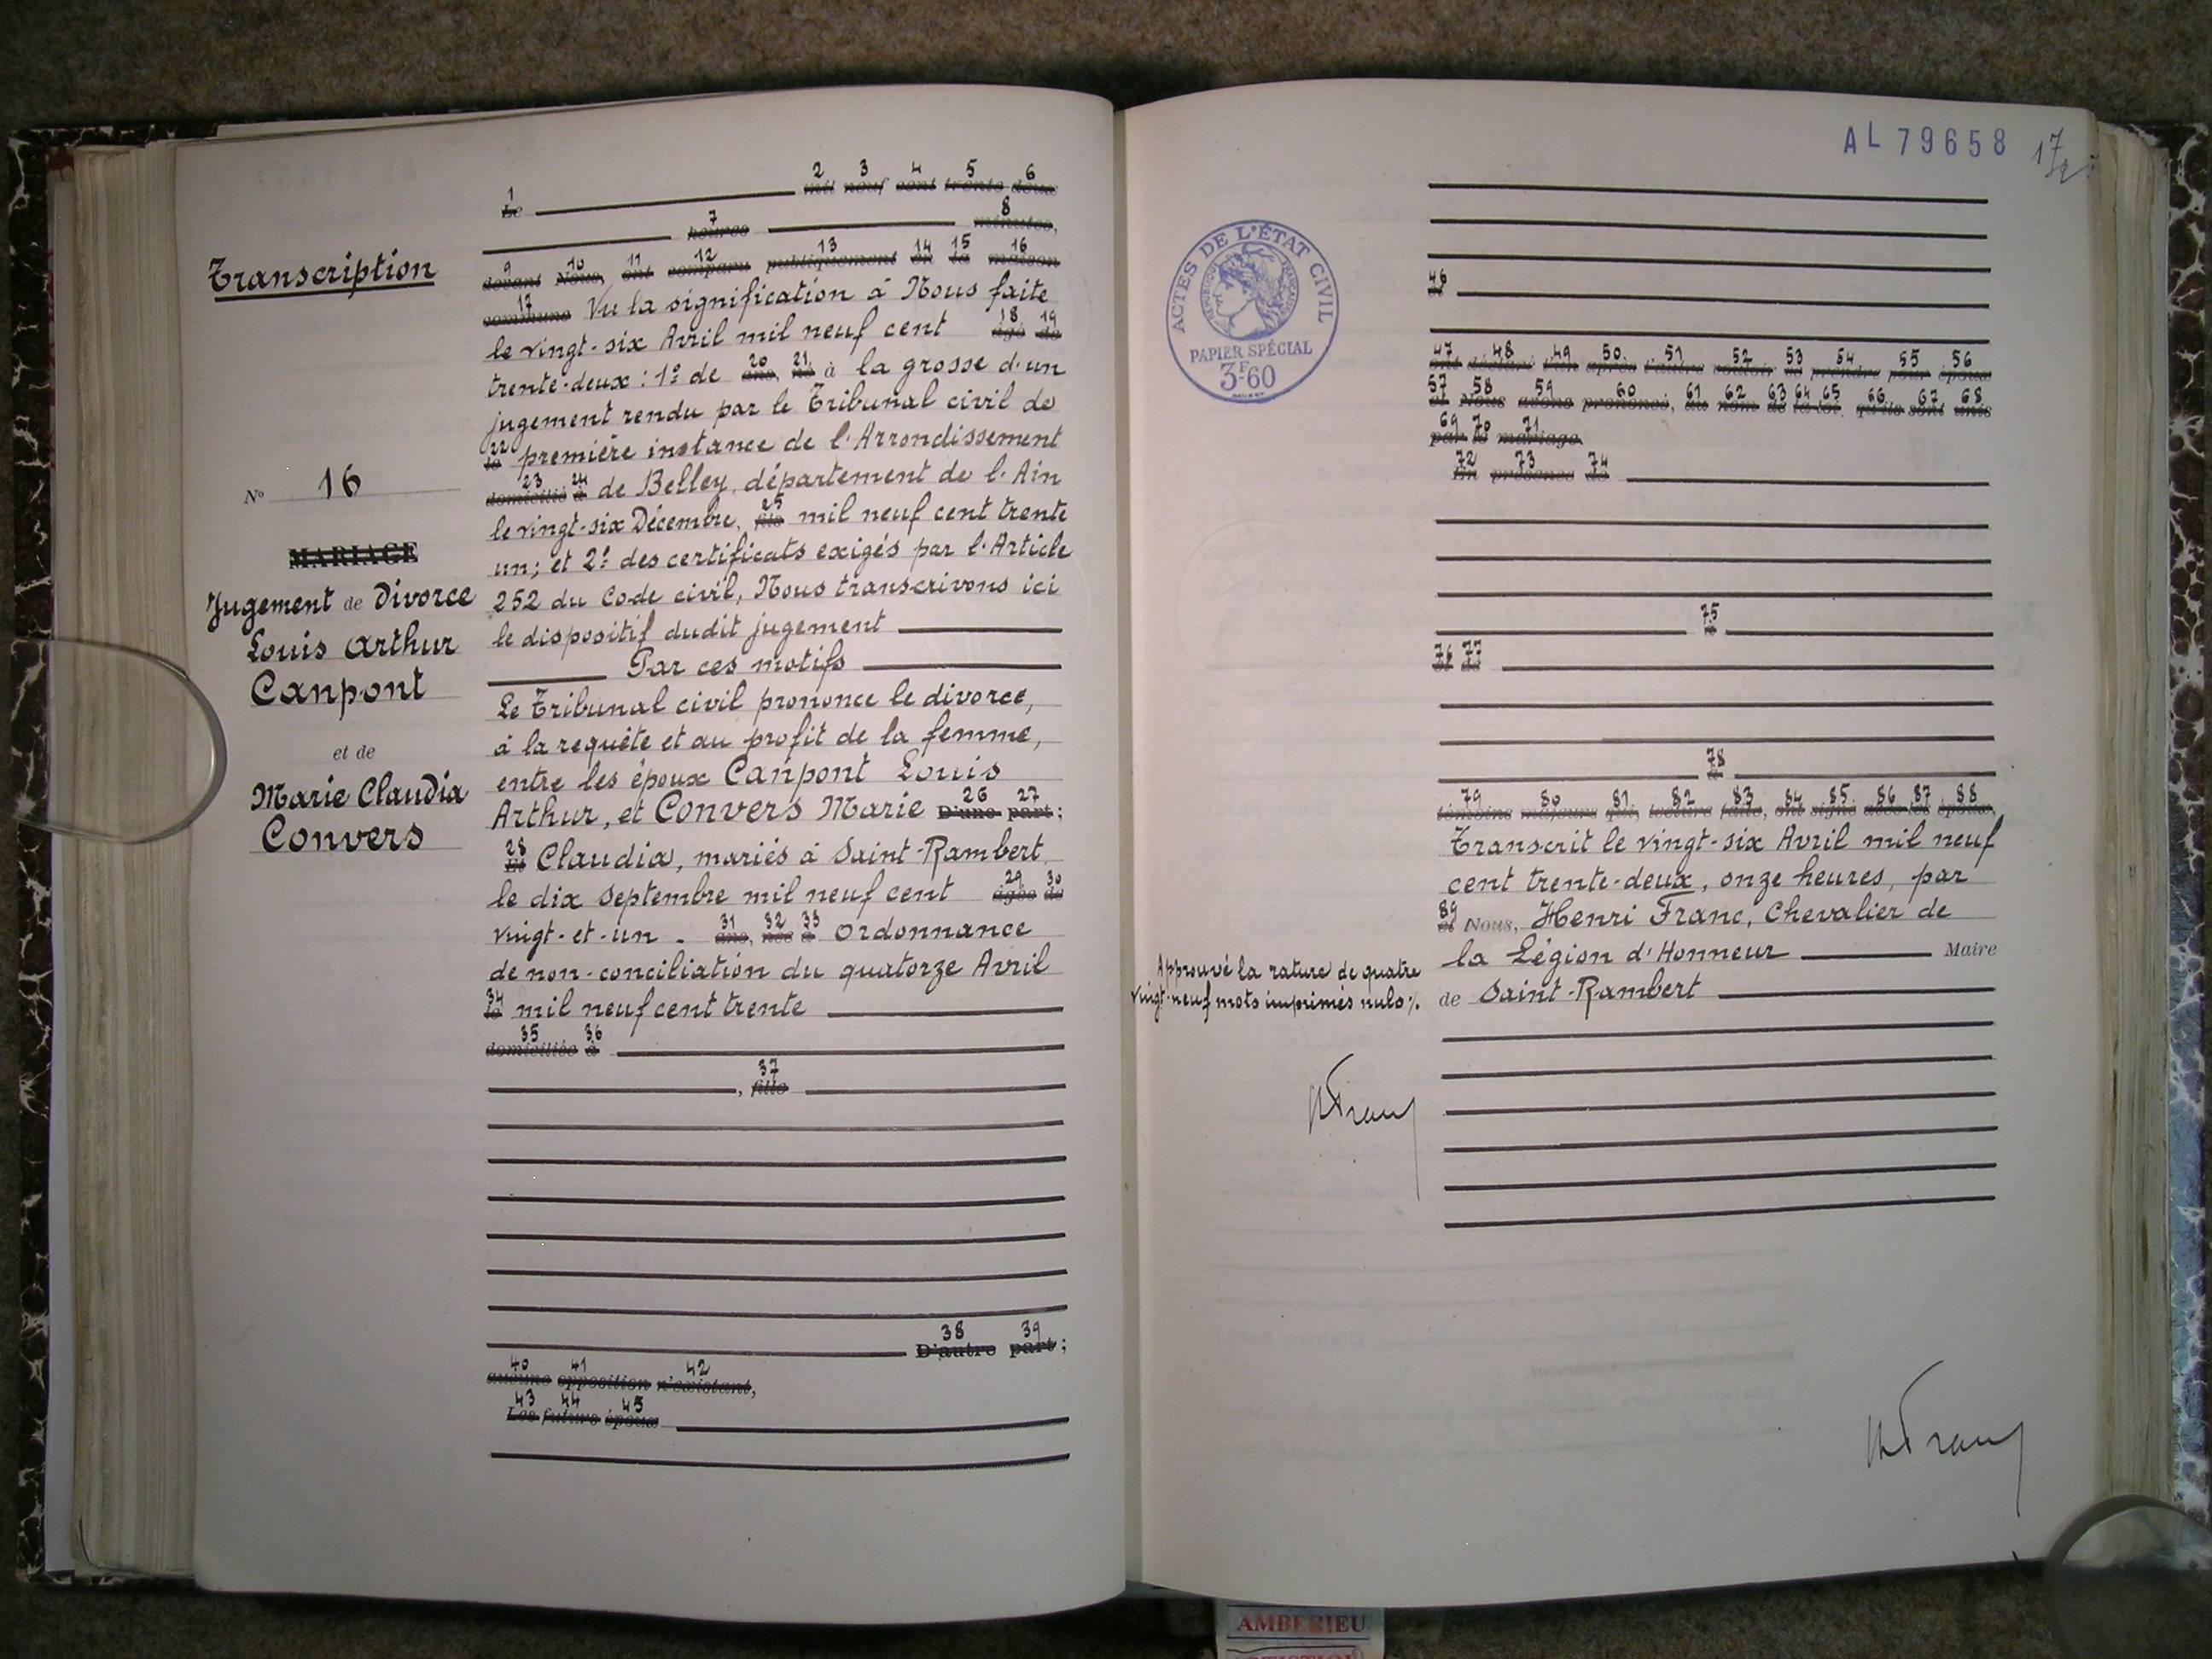 Transcription
N° 16
MARIAGE
Jugement de Divorce
Louis Arthur
Canpont
et de
Marie Claudia
Convers
1 2 3 4 5 6
Le mil neuf cent trente deux
7 8
heures minutes,
9 10 11 12 13 14 15 16
devant Nous, ont comparu publiquement en la maison
17
commune Vu la signification à Nous faite
18 19
le vingt-six Avril mil neuf cent âgé de
20 21
trente-deux : 1° de ans, né à la grosse d'un
jugement rendu par le Tribunal civil de
22
le première instance de l'Arrondissement
23 24
domicilié à de Belley, département de l'Ain
25
le vingt-six Décembre, fils mil neuf cent trente
un; et 2° des certificats exigés par l'Article
252 du Code civil, Nous transcrivons ici
le dispositif dudit jugement
Par ces motifs
Le Tribunal civil prononce le divorce,
à la requête et au profit de la femme,
entre les époux Canpont Louis
26 27
Arthur, et Convers Marie D'une part;
28
Et Claudia, mariés à Saint-Rambert
29 30
le dix Septembre mil neuf cent âgée de
31 32 33
vingt-et-un . ans, née à Ordonnance
de non-conciliation du quatorze Avril
34
le mil neuf cent trente
35 36
domiciliée à
37
, fille
38 39
D'autre part;
40 41 42
aucune opposition n'existant,
43 44 45
Les futurs époux
AL 79658
17
ACTES DE L'ÉTAT CIVIL
RÉPUBLIQUE FRANÇAISE
PAPIER SPÉCIAL
3F60
46
de
47 48 49 50 51 52 53 54 55 56
ont déclaré l'un après l'autre vouloir se prendre pour époux
57 58 59 60 61 62 63 64 65 66 67 68
et Nous avons prononcé, au nom de la loi, qu'ils sont unis
69 70 71
par le mariage.
72 73 74
En présence de
75
76 77
et de
78
79 80 81 82 83 84 85 86 87 88
témoins majeurs qui, lecture faite, ont signé avec les époux,
Transcrit le vingt-six Avril mil neuf
cent trente-deux, onze heures, par
89
et Nous, Henri Franc, Chevalier de
la Légion d'Honneur Maire
de Saint-Rambert
Approuvé la rature de quatre
vingt-neuf mots imprimés nuls ./.
HFranc
HFranc
AMBERIEU